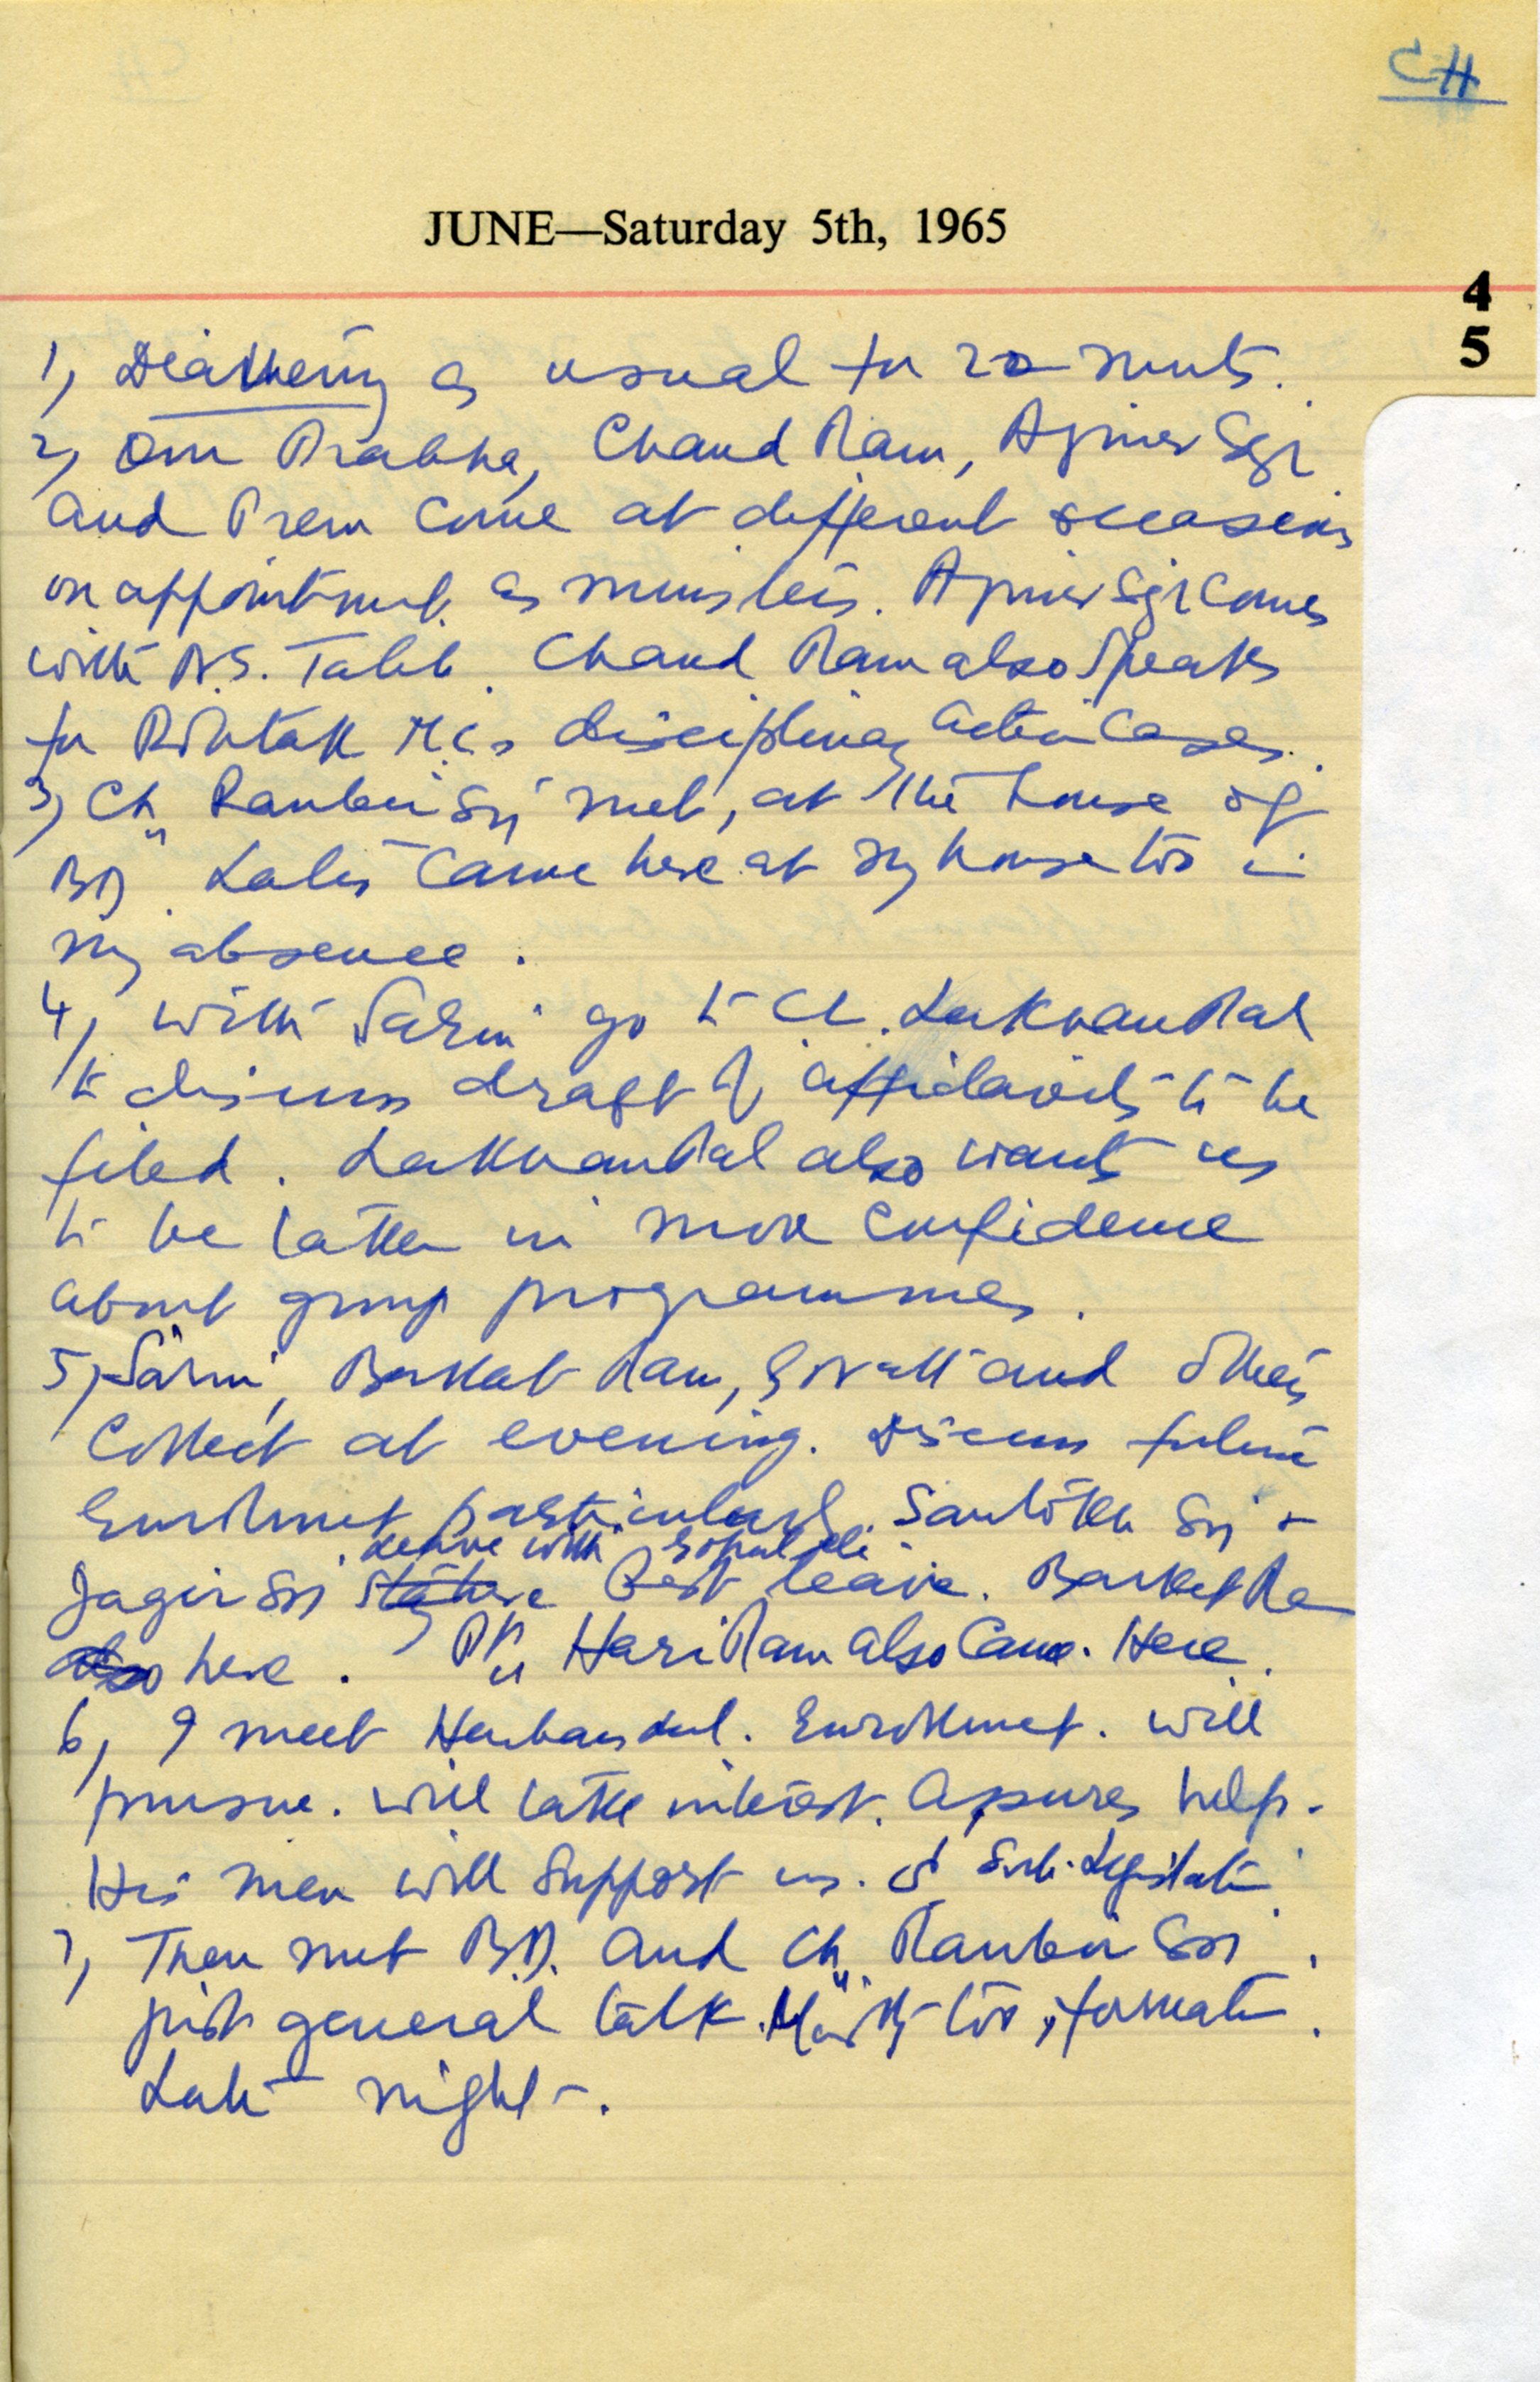 CH
JUNE—Saturday 5th, 1965
4
5
1, Diathermy as usual for 20 minuts.
2, Om Prabha, Chand Ram, Ajmer Sgr
and Prem come at different occasions
on appointment as ministers. Ajmer Sgr comes
with N.S. Talib. Chand Ram also speaks
for Rohtak M.C.s disciplinary action cases.
3, Ch. Ranbir Sgr met, at the house of
BD. Later came here at my house too in
my absence.
4, with Sarin go to Ch. Lakhan Pal
to discuss draft of affidavits to be
filed. Lakhan Pal also wants us
to be taken in more confidence
about group programmes.
5, Sarin, Barkat Ram, and others
collect at evening. Discuss future
Enrolment particularly. Santokh Sgr &
leave with
Jagir Sgr Rest leave. Barket Ra
also here. Pt. Hari Ram also came. Here.
6, I meet Harbans Lal. Enrolment. will
pursue. will take interest. Assures help.
His men will support us. Sub. Legislation
7, Then met B.D. and Ch. Ranbir Sgr.
just general talk. Mostly too, formation.
Late night.